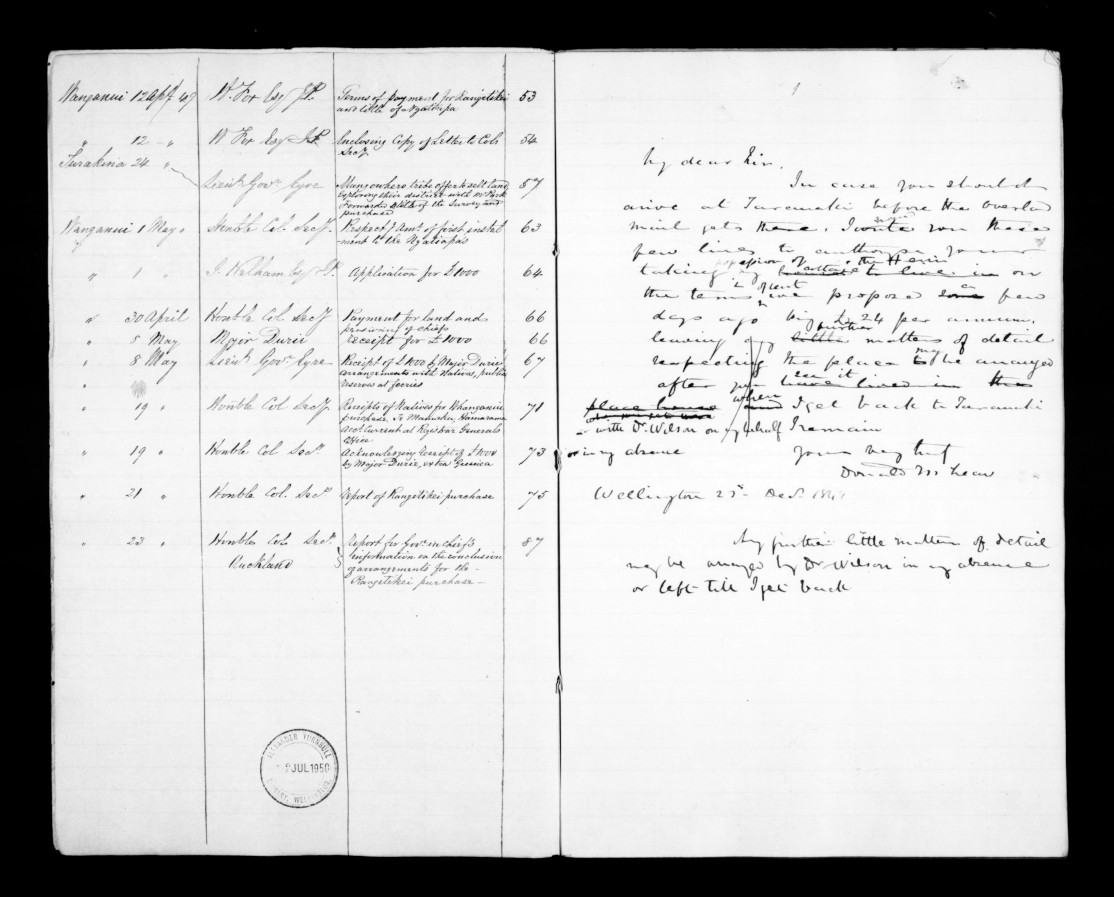 Wanganui 12 Apl 49 W. Fox Esq J.P. Terms of payment for Rangitikei 53
and title of Ngatiapa
" 12 " W Fox Esq J.P. Enclosing Copy of Letter to Coll 54
Secy
Turakina 24 "
Lieut Govr Eyre Mangowhero tribe offer to sell land 57
Exploring their district with Mr Park
Forwarded Sketch of the Survey and
purchase
Wanganui 1 May " Honble Col. Secy. Respectg Amt of first instal- 63
-ment to the Ngatiapas
" 1 " Esq J.P. Application for £1000 64
" 30 April Honble Col. Secy Payment for land and 66
of chiefs
" 5 May Major Durie Receipt for £1000 66
" 8 May Lieut Govr Eyre Receipt of £1000 by Major Durie 67
arrangements with Natives, public
reserves at ferries
"
" 19 " Honble Col Secy. Receipts of Natives for Whanganui 71
purchase, Te Mamaku,
Acct Current at Registrar Generals
Office
" 19 " Honble Col Secy. Acknowledging receipt of £1000 73
by Major Durie,
" 21 " Honble Col. Secy. Report of Rangitikei purchase 75
" 23 " Honble Col. Secy. Report for Govr in chief's 87
Auckland information on the conclusion
of arrangements for the -
Rangitikei purchase -
ALEXANDER TURNBULL
JUL 1950
LIBRARY, WELLINGTON
1
My dear Sir,
In case you should
arrive at Taranaki before the overland
mail gets there, I write you these
few lines to authorise your
possession of
taking my cottage to live in on
the terms of rent propose a few
days ago viz £24 per annum.
leaving any further little matters of detail
respecting the place to may be arranged
after you have seen it lived in the
place house when and I get back to Taranaki
or with Dr. Wilson on my behalf I remain
or in my absence Yours very truly
Donald McLean
Wellington 23rd Decr.
Any further little matters of detail
may be arranged by Dr Wilson in my absence
or left till I get back